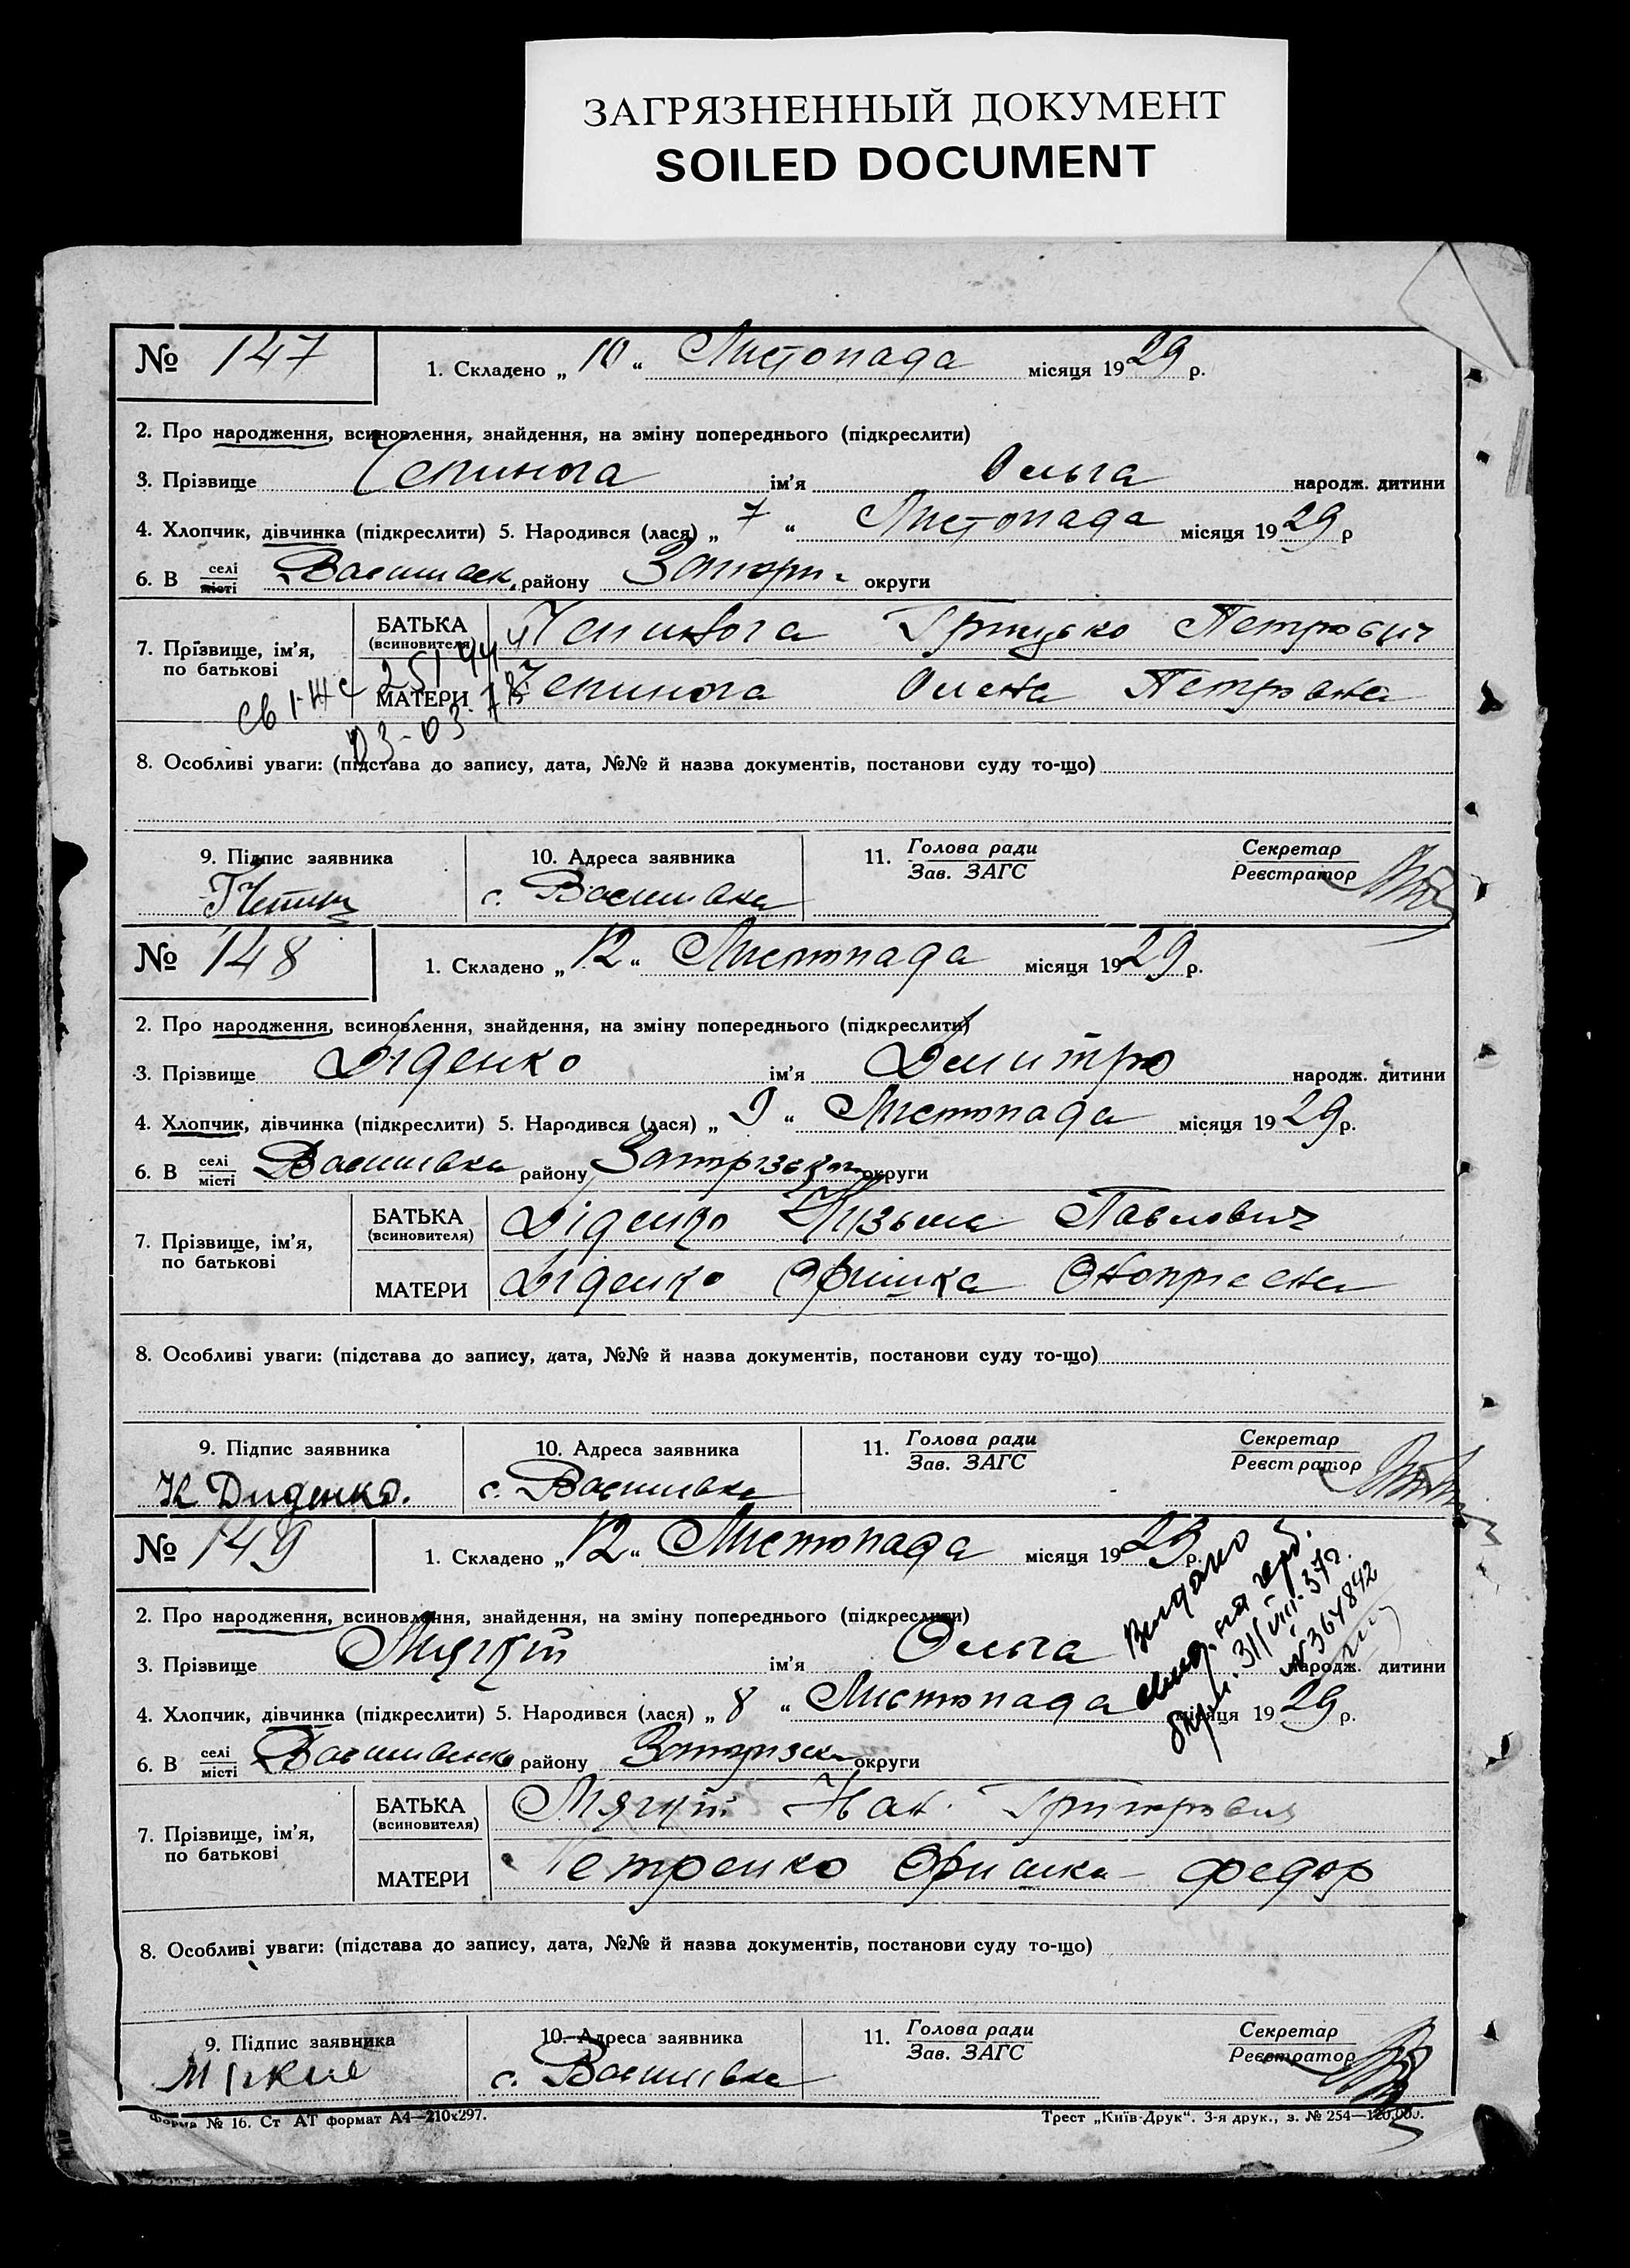 ЗАГРЯЗНЕННЫЙ ДОКУМЕНТ
SOILED DOCUMENT
№ 147
1. Складено „ 10 “ Листопада місяця 1929 р.
2. Про народження, всиновлення, знайдення, на зміну попереднього (підкреслити)
3. Прізвище Чепинога ім'я Ольга народж. дитини
4. Хлопчик, дівчинка (підкреслити) 5. Народився (лася) „ 7 “ Листопада місяця 1929 р
6. В селі місті Василівск. району Запоріз. округи
7. Прізвище, ім'я, по батькові
БАТЬКА (всиновителя) Чепинога Грицько Петрович
МАТЕРИ Чепинога Олена Петровна
8. Особливі уваги: (підстава до запису, дата, №№ й назва документів, постанови суду то-що)
9. Підпис заявника
10. Адреса заявника с. Василівка
11. Голова ради Зав. ЗАГС
Секретар Реєстратор
№ 148
1. Складено „ 12 “ Листопада місяця 1929 р.
2. Про народження, всиновлення, знайдення, на зміну попереднього (підкреслити)
3. Прізвище Діденко ім'я Дмитро народж. дитини
4. Хлопчик, дівчинка (підкреслити) 5. Народився (лася) „ 9 “ Листопада місяця 1929 р.
6. В селі місті Василівка району округи
7. Прізвище, ім'я, по батькові
БАТЬКА (всиновителя) Діденко Кузьма Павлович
МАТЕРИ Діденко Оришка Онопріевна
8. Особливі уваги: (підстава до запису, дата, №№ й назва документів, постанови суду то-що)
9. Підпис заявника К. Диденко.
10. Адреса заявника с. Василівка
11. Голова ради Зав. ЗАГС
Секретар Реєстратор
№ 149
1. Складено „ 12 “ Листопада місяця 1929 р.
2. Про народження, всиновлення, знайдення, на зміну попереднього (підкреслити)
3. Прізвище Мягкій ім'я Ольга народж. дитини
Видано
31/VIII.37р.
№ 364842
4. Хлопчик, дівчинка (підкреслити) 5. Народився (лася) „ 8 “ Листопада місяця 1929 р.
6. В селі місті району округи
7. Прізвище, ім'я, по батькові
БАТЬКА (всиновителя) Мягкій Іван Григорович
МАТЕРИ Петренко Оришка Федор
8. Особливі уваги: (підстава до запису, дата, №№ й назва документів, постанови суду то-що)
9. Підпис заявника
10. Адреса заявника с. Василівка
11. Голова ради Зав. ЗАГС
Секретар Реєстратор
Форма № 16. Ст АТ формат А4—210х297.
Трест „Київ-Друк“. 3-я друк., з. № 254—120.000.